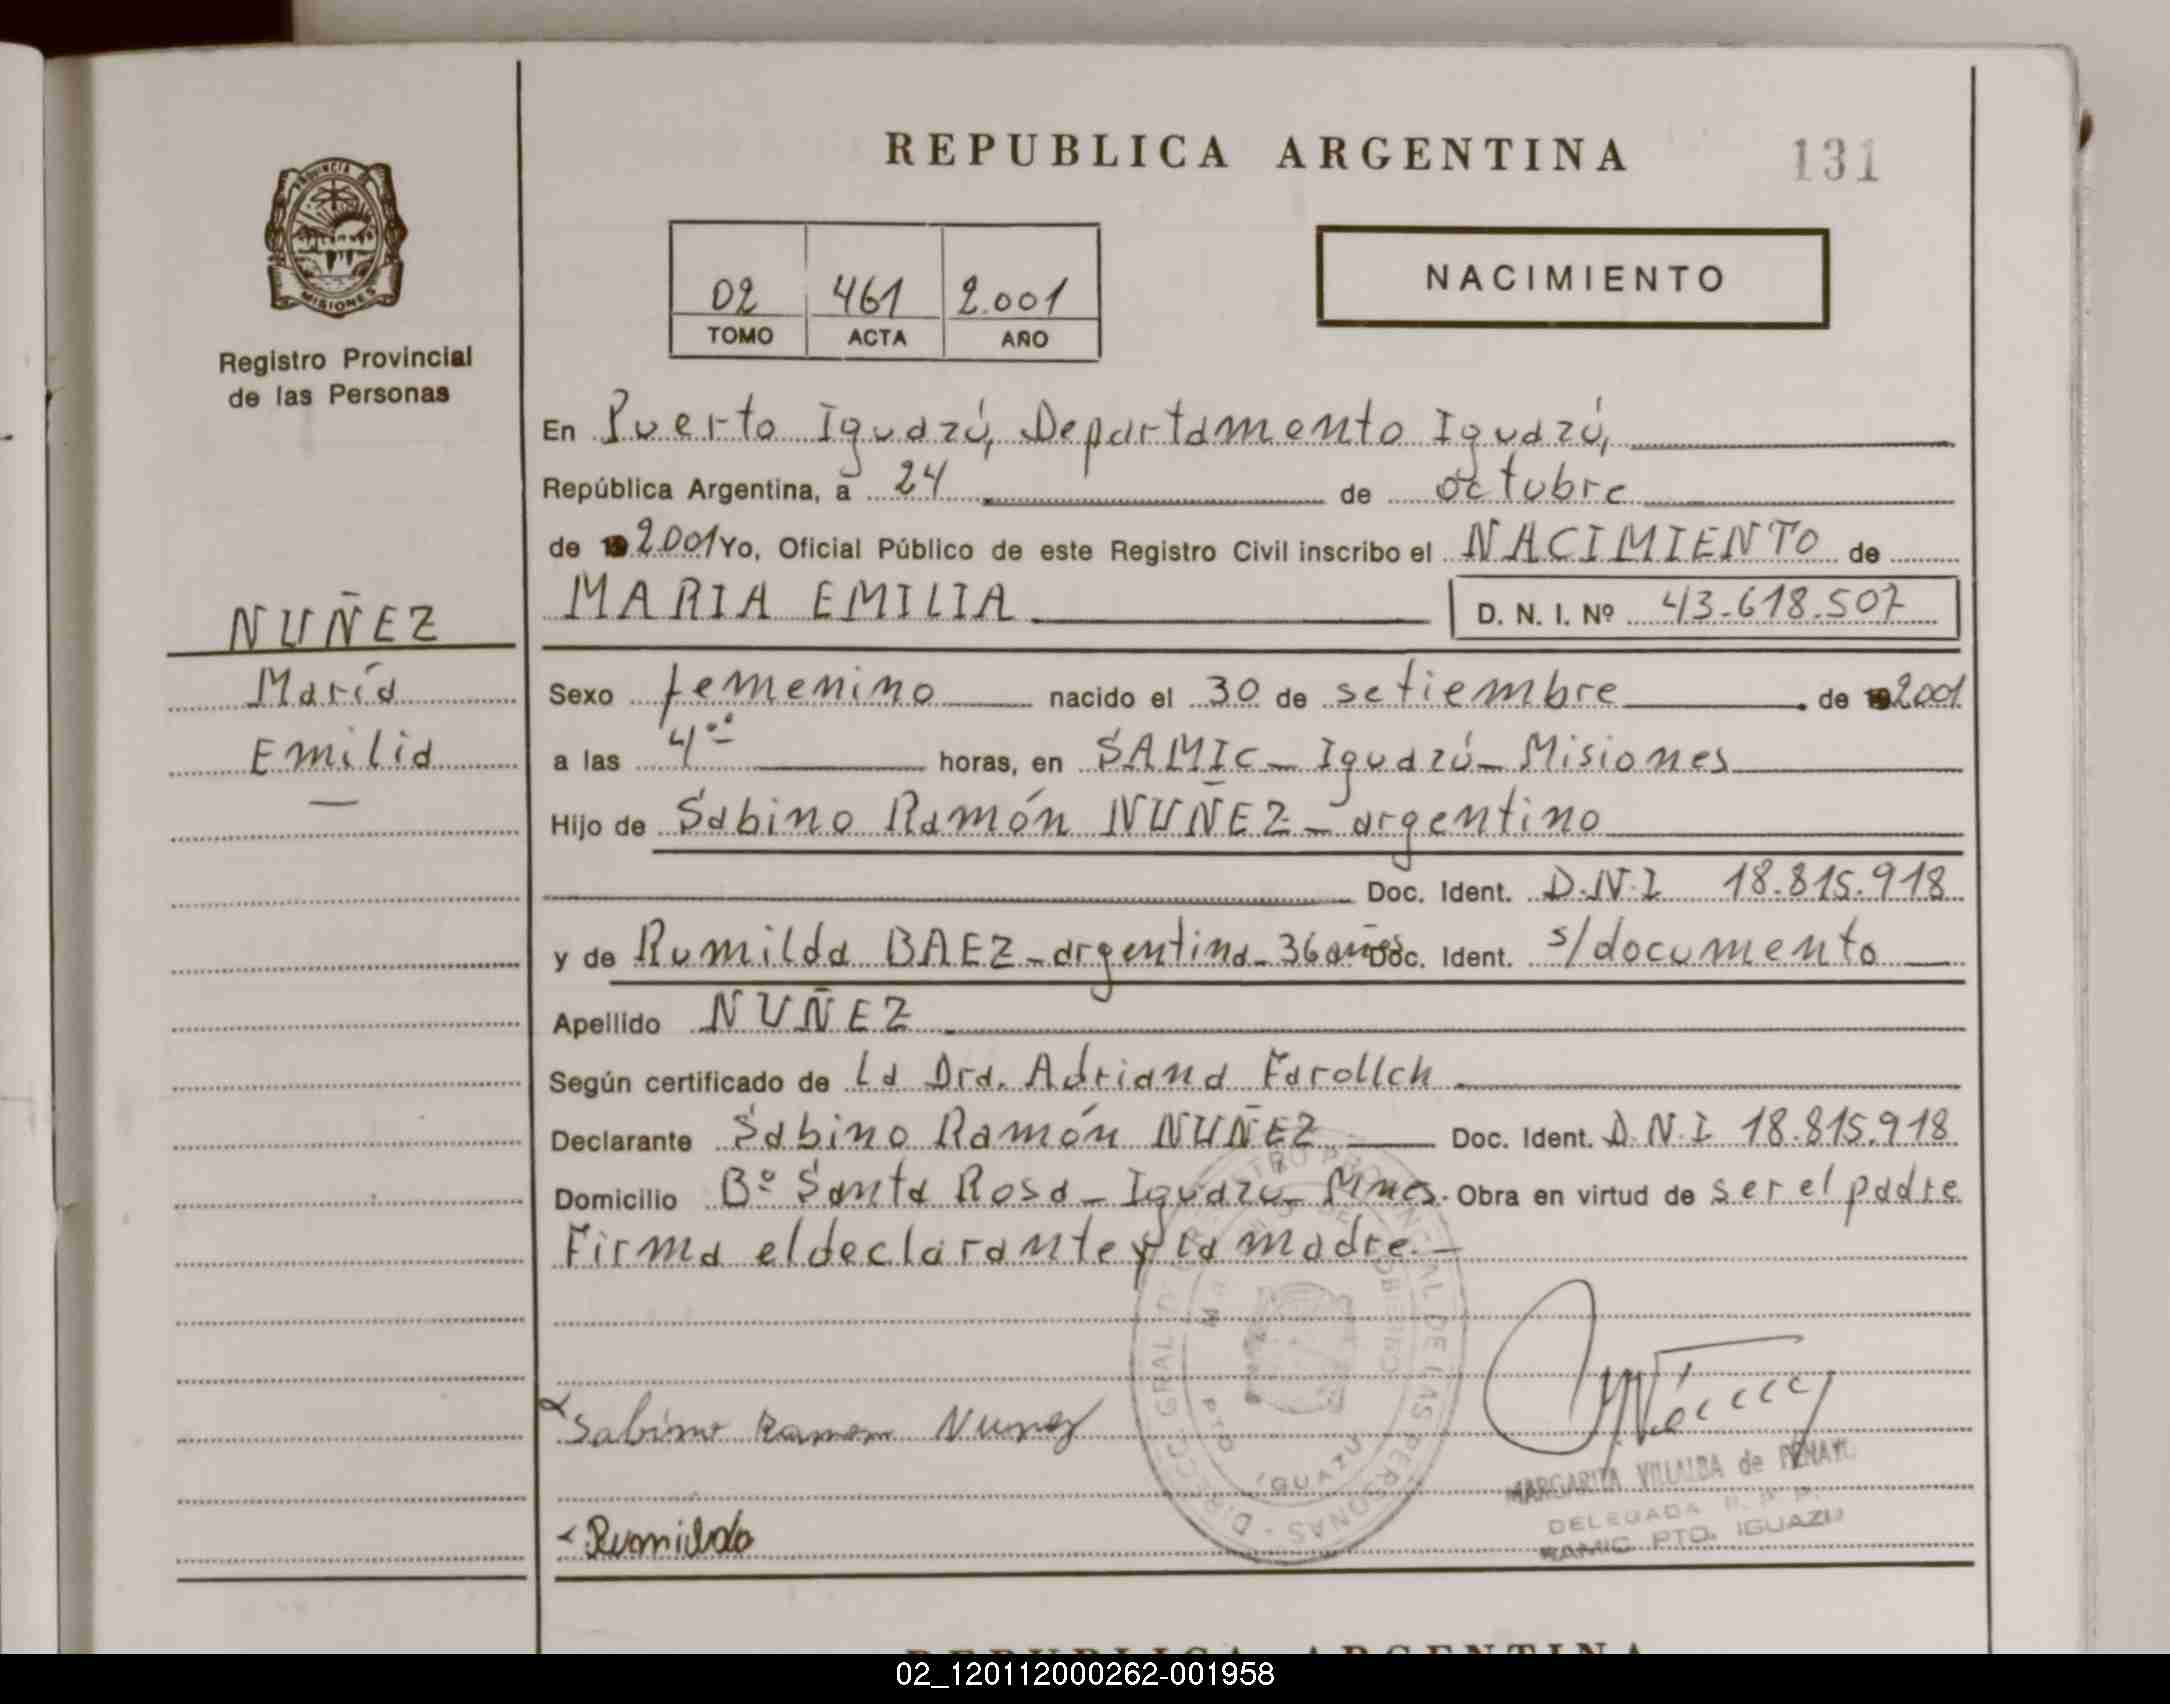 REPUBLICA ARGENTINA
131
PROVINCIA DE
MISIONES
Registro Provincial
de las Personas
02 461 2.001
TOMO ACTA AÑO
NACIMIENTO
En Puerto Iguazú, Departamento Iguazú,
República Argentina, a 24 de octubre
de 2001 Yo, Oficial Público de este Registro Civil inscribo el NACIMIENTO de
MARIA EMILIA D. N. I. Nº 43.618.507
NUÑEZ
María
Emilia
Sexo femenino nacido el 30 de setiembre de 2001
a las 4 horas, en SAMIC - Iguazú - Misiones
Hijo de Sabino Ramón NUÑEZ - argentino
Doc. Ident. D.N.I 18.815.918
y de Romilda BAEZ - argentina - 36 años Doc. Ident. s/documento
Apellido NUÑEZ
Según certificado de La Dra. Adriana
Declarante Sabino Ramón NUÑEZ Doc. Ident. D.N.I 18.815.918
Domicilio Bº Santa Rosa - Iguazú - Mnes. Obra en virtud de ser el padre
Firma el declarante y la madre.-
Sabino Ramon Nuñez
Romilda
MARGARITA VILLALBA de PENAYO
DELEGADA R. P. P.
SAMIC PTO. IGUAZU
REPUBLICA ARGENTINA
02_120112000262-001958